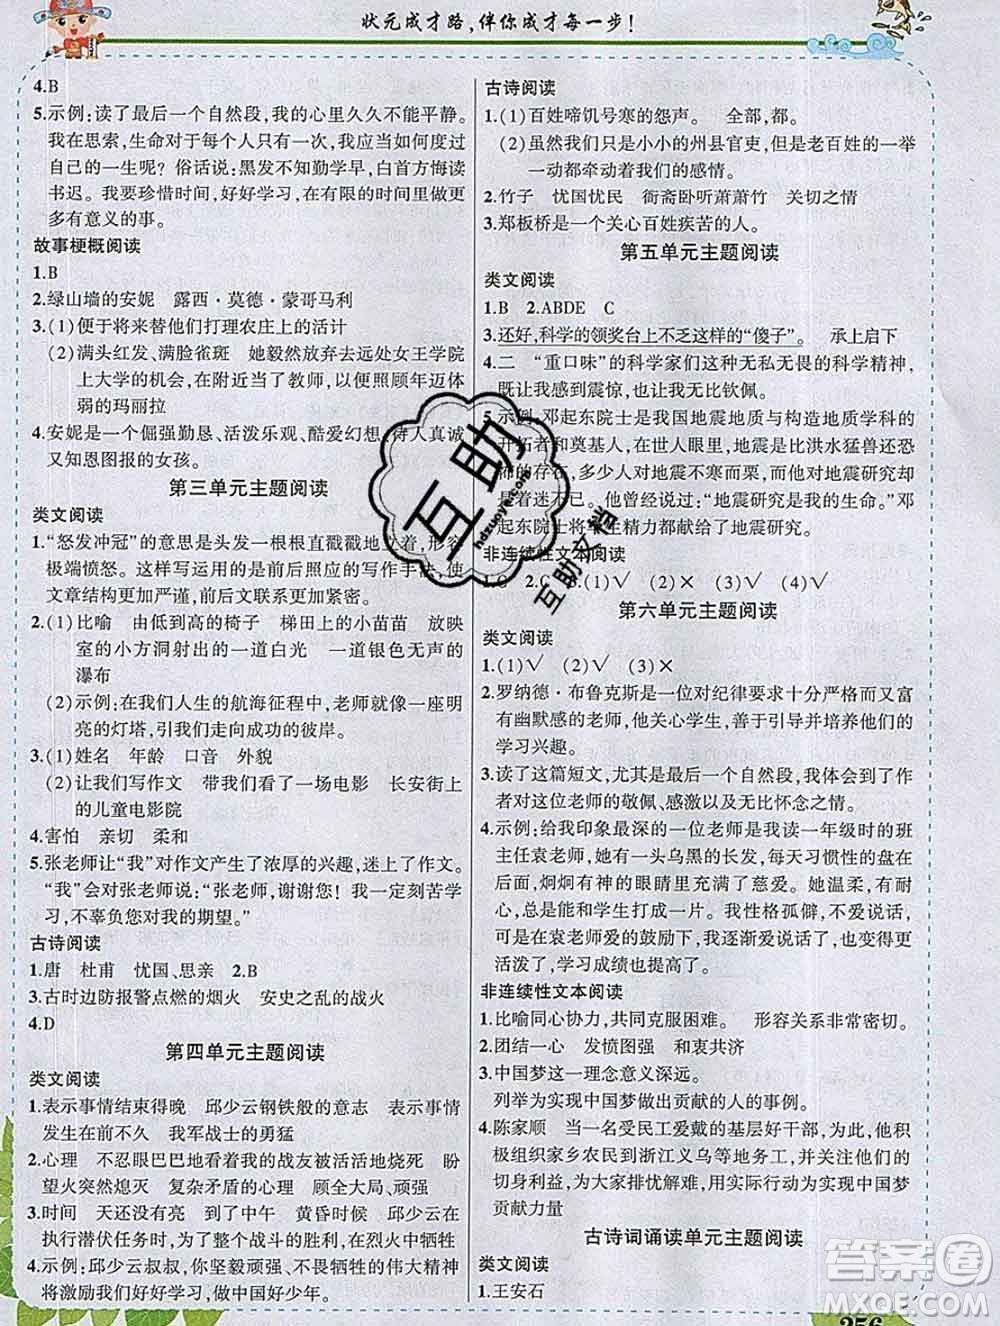 状元成才路,伴你成才每一步!
4.B
5.示例:读了最后一个自然段,我的心里久久不能平静。
我在思索,生命对于每个人只有一次,我们应该怎样度
过自己的一生呢? 俗话说:黑发不知勤学早,白首方悔读
书迟。我要珍惜时间,好好学习,在有限的时间里做更
多有意义的事。
故事梗概阅读
1.B
2.绿山墙的安妮 露西·莫德·蒙哥马利
3.(1)便于将来替他们打理农庄上的活计
(2)满头红发、满脸雀斑 她毅然放弃去处女王学院
上大学的机会,在附近当了教师,以便照顾年迈体
弱的玛丽拉
4.安妮是一个倔强勤恳、活泼乐观、酷爱幻想,待人真诚
又知恩图报的女孩。
第三单元主题阅读
类文阅读
1.“怒发冲冠”的意思是头发一根根直戳戳地立着,形容
极端愤怒。这样写运用的是前后照应的写作手法,使
文章结构更加严谨,前后文联系更加紧密。
2.(1)比喻 由低到高的椅子 梯田上的小苗苗 放映
室的小方洞射出的一道白光 一道银色无声的
瀑布
(2)示例:在我们人生的航海征程中,老师就像一座明
亮的灯塔,引我们走向成功的彼岸。
3.(1)姓名 年龄 口音 外貌
(2)让我们写作文 带我们看了一场电影 长安街上
的儿童电影院
4.害怕 亲切 柔和
5.张老师让“我”对作文产生了浓厚的兴趣,迷上了作文。
“我”会对张老师说:“张老师,谢谢您! 我一定刻苦学
习,不辜负您对我的期望。”
古诗阅读
1.唐 杜甫 忧国、思亲 2.B
3.古时边防报警点燃的烟火 安史之乱的战火
4.D
第四单元主题阅读
类文阅读
1.表示事情结束得晚 邱少云钢铁般的意志 表示事情
发生在前不久 我军战士的勇猛
2.心理 不忍眼巴巴地看着我的战友被活活地烧死 盼
望火突然熄灭 复杂矛盾的心理 顾全大局、顽强
3.时间 天还没有亮 到了中午 黄昏时候 邱少云在
执行潜伏任务时,为了整个战斗的胜利,壮烈牺牲
4.示例:邱少云叔叔,您坚毅顽强、不畏牺牲的精神,永远
将激励我们好好学习,做中国好少年。
古诗阅读
1.(1)百姓啼饥号寒的怨声。 全部,都。
(2)虽然我们只是小小的州县官吏,但是老百姓的一举
一动都牵动着我们的感情。
2.竹子 忧国忧民 衙斋卧听萧萧竹 关切之情
3.郑板桥是一个关心百姓疾苦的人。
第五单元主题阅读
类文阅读
1.B 2.ABDE C
3.还好,科学的领奖台上不乏这样的“傻子”。 承上启下
4.二 “重口味”的科学家们这种无私无畏的科学精神,
既让我感到震惊,也让我无比钦佩。
5.示例:邓起东院士是我国地震地质与构造地质学科的
开拓者和奠基人,在世人眼里,地震是比洪水猛兽还恐
怖的存在,有些人对地震不寒而栗,可他对地震的研究
越来越着迷不已。他曾说过:“地震研究是我的生命。”邓
起东院士将毕生精力都献给了地震研究。
非连续性文本阅读
1.C 2.C 3.(1)√ (2)× (3)√ (4)√
第六单元主题阅读
类文阅读
1.(1)√ (2)√ (3)×
2.罗纳德·布鲁克斯是一位对纪律要求十分严格而又富
有幽默感的老师,他关心学生,善于引导并培养他们的
学习兴趣。
3.读了这篇短文,尤其是最后一个自然段,我体会到了作者
对这位老师的敬佩、感激以及无比怀念之情。
4.示例:给我印象最深的一位老师是我读一年级时的班
主任袁老师。她有一头乌黑的长发,每天习惯性的盘在
后面,炯炯有神的眼睛里充满了慈爱。她温柔,有耐
心,总是能和学生打成一片。我性格孤僻,不爱说话,
可是在袁老师爱的鼓励下,我逐渐爱说话了,性格变得
活泼了,学习成绩也提高了。
非连续性文本阅读
1.比喻同心协力,共同克服困难。 形容关系非常密切。
2.团结一心 发愤图强 和衷共济
3.中国梦这一理念意义深远。
列举为实现中国梦作出贡献的人的事例。
4.陈家顺 作为一名受民工爱戴的基层好干部,他积
极组织家乡农民到浙江义乌等地务工,并关心他们的
切身利益,为大家排忧解难,用实际行动为实现中国梦
贡献力量
古诗词诵读单元主题阅读
类文阅读
1.王安石
互助
hdzuoye.com
互助文档
答案圈
MXQE.COM
256